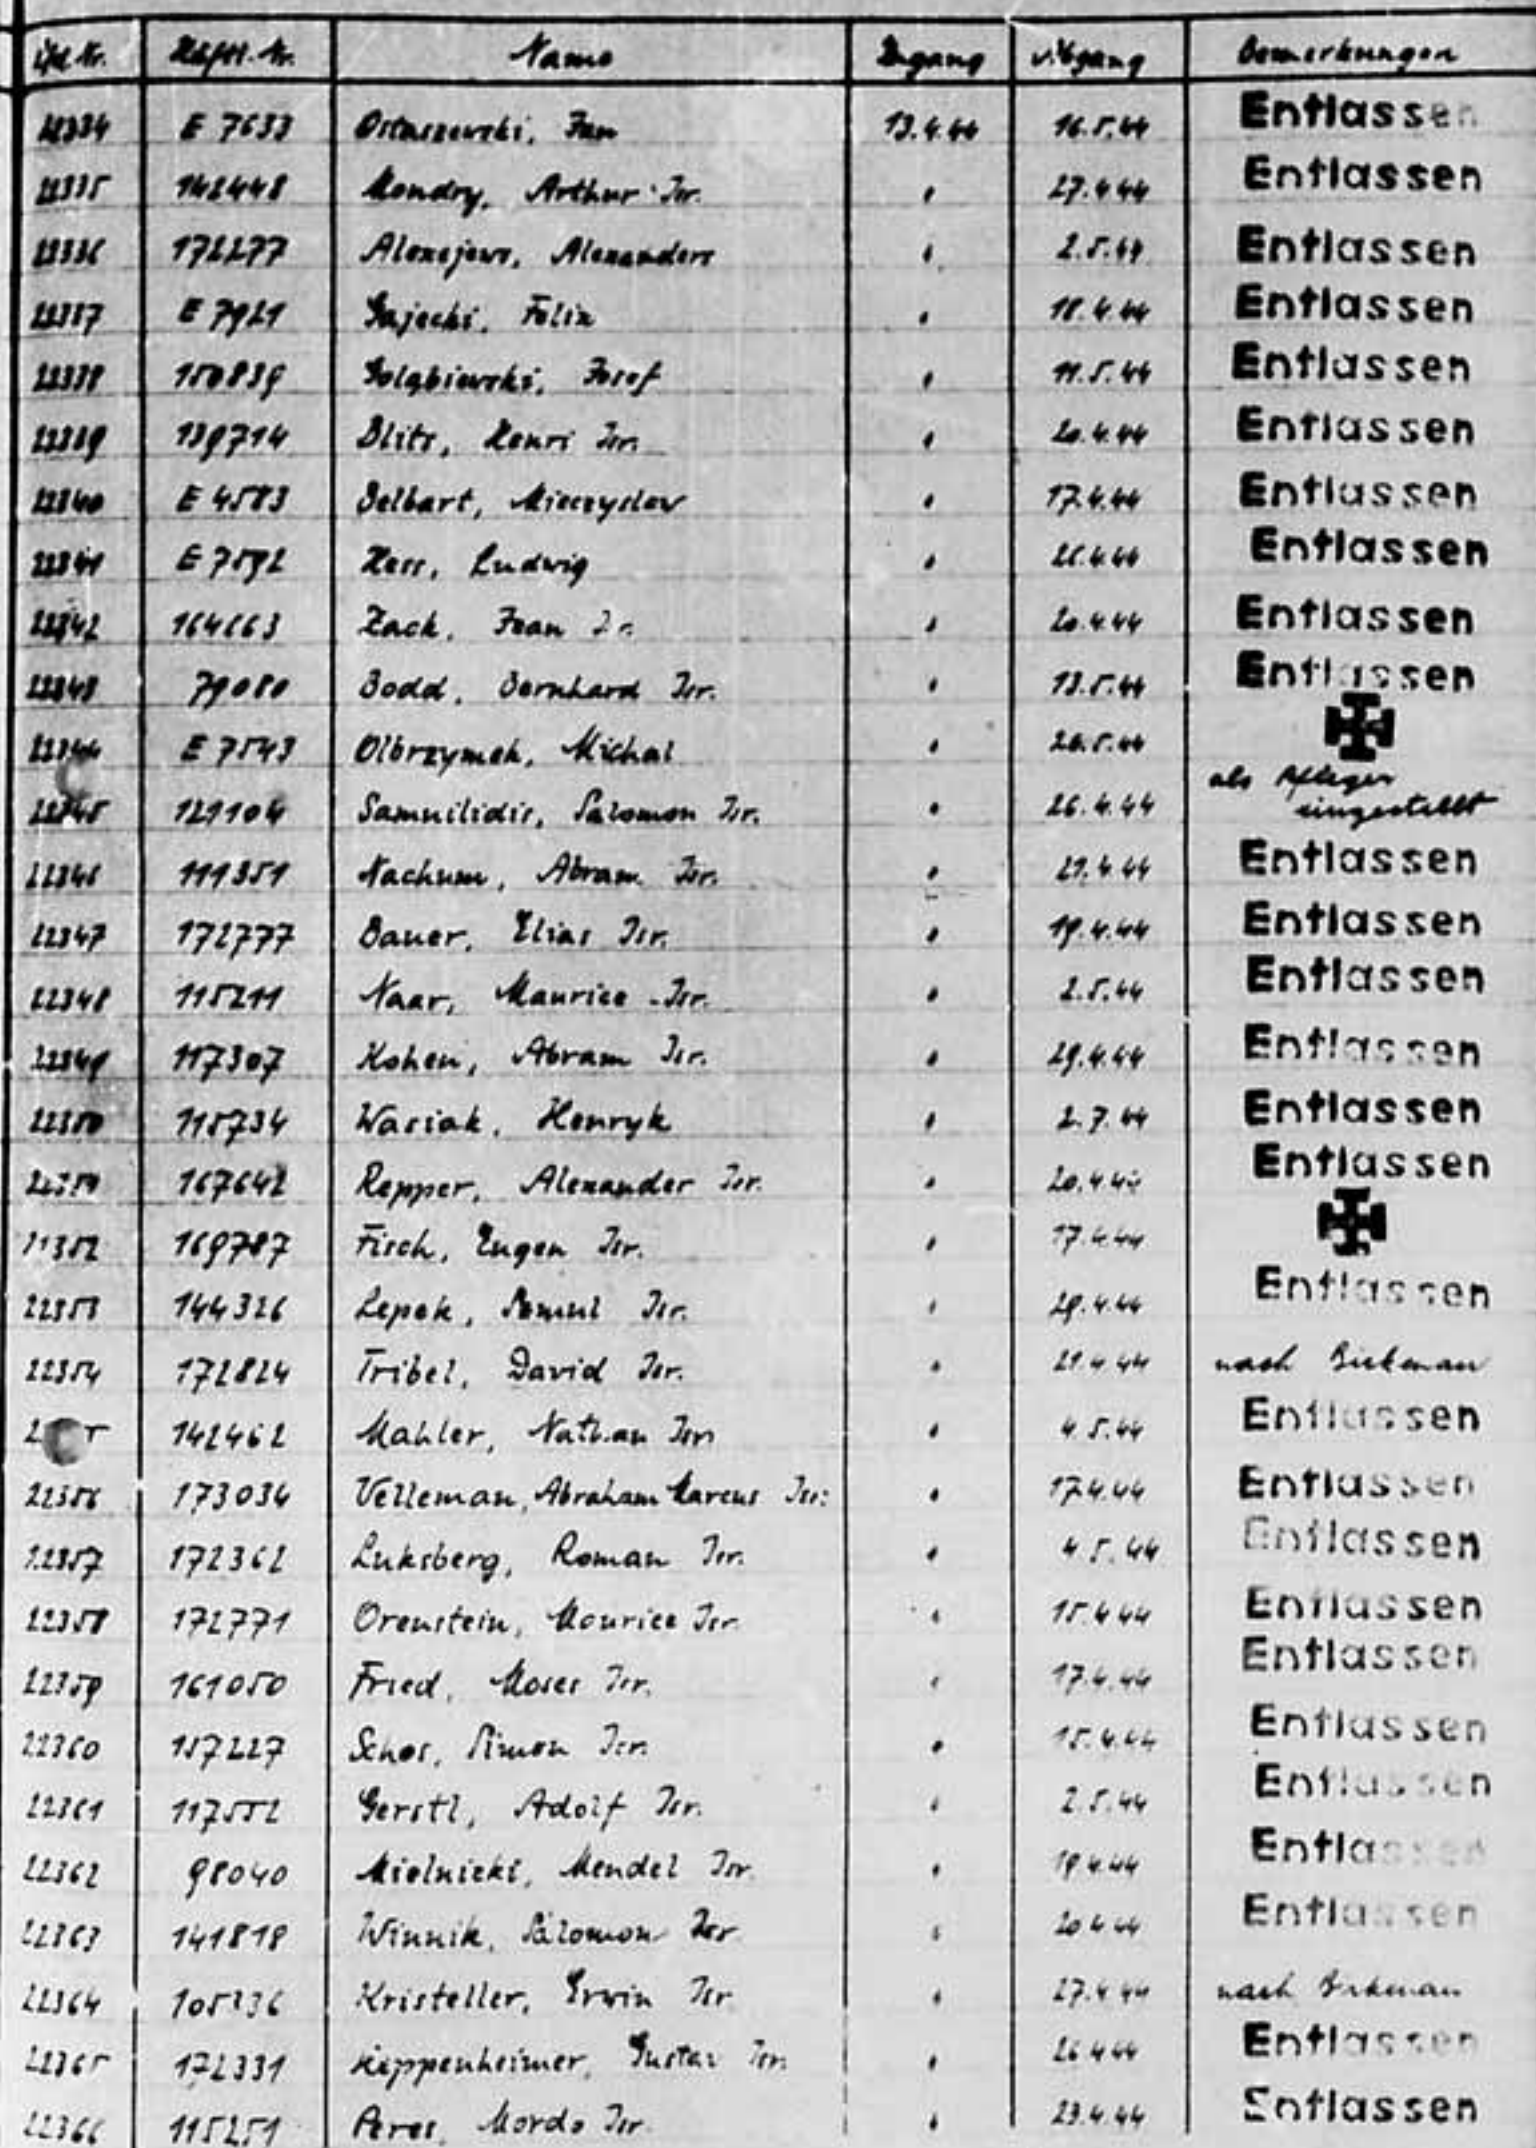 Lfd. Nr. Häftl. Nr. Name Zugang Abgang Bemerkungen
22334 E 7633 Ostaszewski, Jan 13.4.44 16.5.44 Entlassen
22335 142448 Mondry, Arthur Isr. " 27.4.44 Entlassen
22336 172277 Alexejews, Alexanders " 2.5.44 Entlassen
22337 E 7921 Gajecki, Felix " 18.4.44 Entlassen
22338 150839 Goląbiewski, Josef " 11.5.44 Entlassen
22339 139714 Blitz, Henri Isr. " 20.4.44 Entlassen
22340 E 4583 Delbart, Mieczyslaw " 17.4.44 Entlassen
22341 E 7592 Hess, Ludwig " 26.4.44 Entlassen
22342 164663 Zack, Jean Isr. " 20.4.44 Entlassen
22343 79080 Dodd, Bernhard Isr. " 13.5.44 Entlassen
22344 E 7543 Olbrzymek, Michal " 20.5.44
22345 121104 Samuilidis, Salomon Isr. " 26.4.44 als Pfleger eingestellt
22346 111351 Nachum, Abram Isr. " 21.4.44 Entlassen
22347 172777 Bauer, Elias Isr. " 19.4.44 Entlassen
22348 115211 Naar, Maurice Isr. " 2.5.44 Entlassen
22349 117307 Kohen, Abram Isr. " 29.4.44 Entlassen
22350 115734 Wasiak, Henryk " 2.7.44 Entlassen
22351 167642 Repper, Alexander Isr. " 20.4.44 Entlassen
22352 169787 Fisch, Eugen Isr. " 17.4.44
22353 144326 Lepek, Samul Isr. " 29.4.44 Entlassen
22354 172824 Tribel, David Isr. " 21.4.44 nach Birkenau
142462 Mahler, Nathan Isr. " 4.5.44 Entlassen
22356 173034 Velleman, Abraham Marcus Isr. " 17.4.44 Entlassen
22357 172362 Luksberg, Roman Isr. " 4.5.44 Entlassen
22358 172771 Orenstein, Maurice Isr. " 15.4.44 Entlassen
22359 161050 Fried, Moses Isr. " 17.4.44 Entlassen
22360 157227 Schos, Simon Isr. " 15.4.44 Entlassen
22361 117552 Gerstl, Adolf Isr. " 2.5.44 Entlassen
22362 98040 Mielnicki, Mendel Isr. " 19.4.44 Entlassen
22363 141818 Winnik, Salomon Isr. " 20.4.44 Entlassen
22364 105336 Kristeller, Erwin Isr. " 27.4.44 nach Birkenau
22365 172331 Heppenheimer, Gustav Isr. " 26.4.44 Entlassen
22366 115251 Peres, Mordo Isr. " 23.4.44 Entlassen